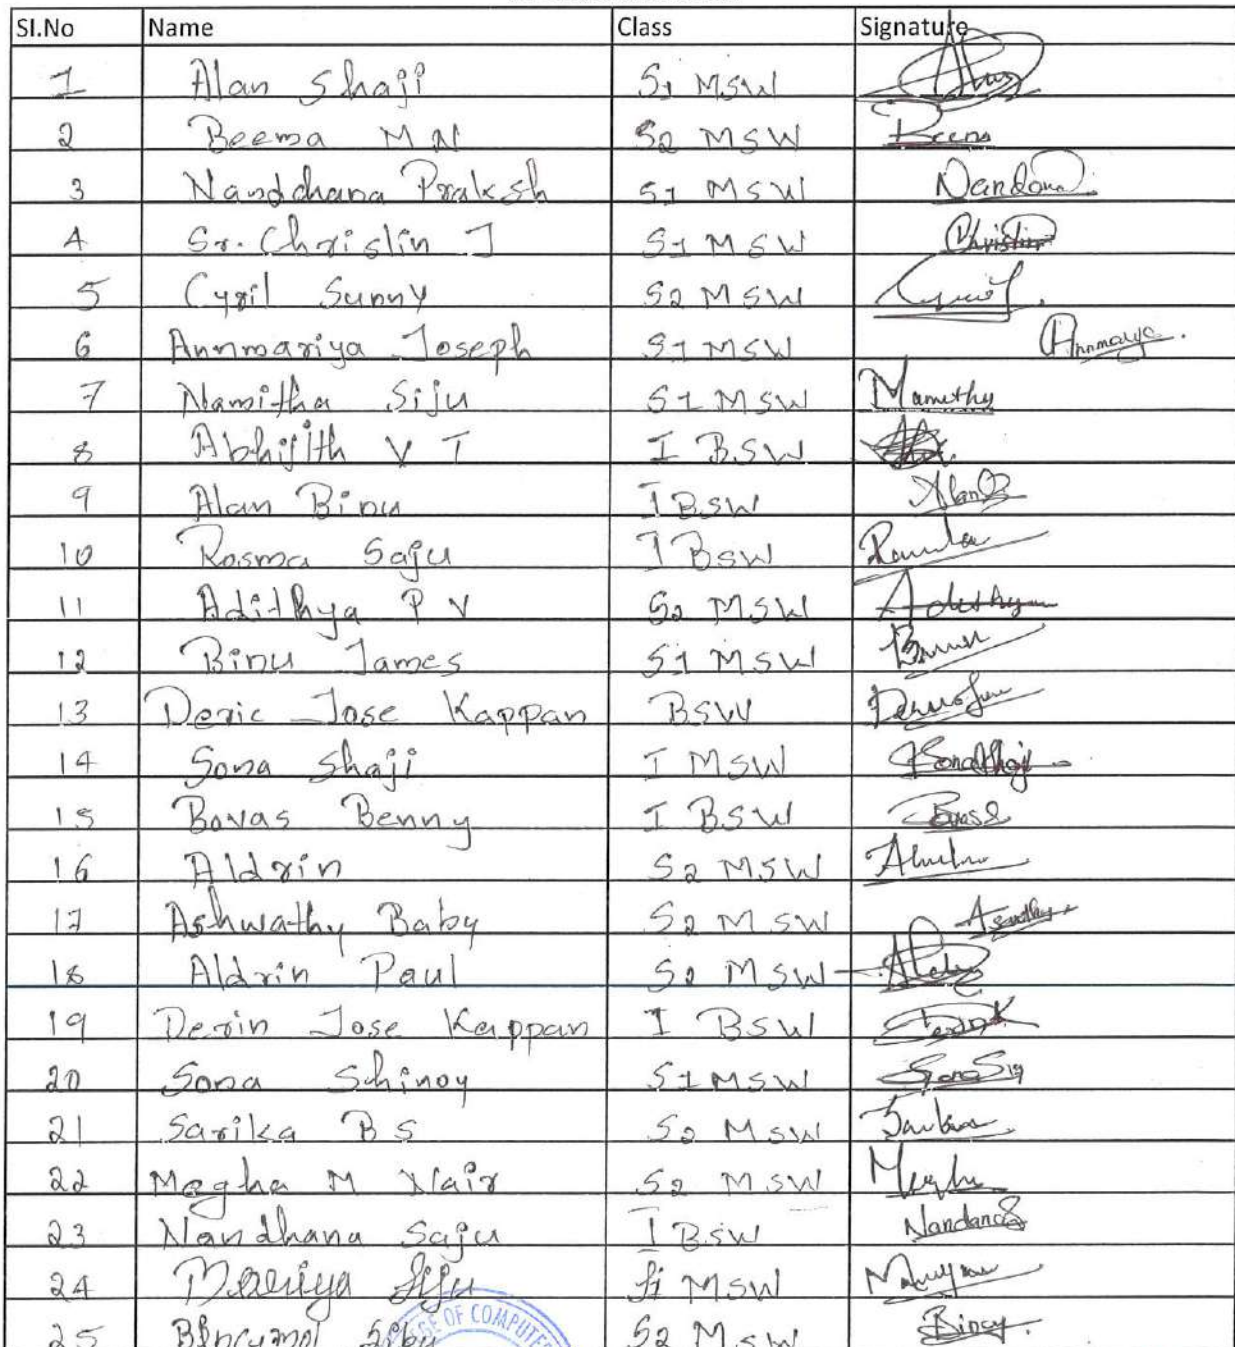 Sl.No Name Class Signature
1 Alan Shaji S1 MSW
2 Beema M N S2 MSW Beema
3 Nanddhana Praksh S1 MSW Nandana
4 Sr. Chrislin J S1 MSW Christin
5 Cyril Sunny S2 MSW
6 Annmariya Joseph S1 MSW Annmarya.
7 Namitha Siju S1 MSW
8 Abhijith V T I BSW
9 Alan Binu I BSW Alan
10 Rosma Saju I BSW
11 Adithya P V S2 MSW
12 Binu James S1 MSW
13 Deric Jose Kappan BSW
14 Sona Shaji I MSW Sona Shaji
15 Bovas Benny I BSW
16 Aldrin S2 MSW
17 Ashwathy Baby S2 MSW
18 Aldrin Paul S2 MSW
19 Derin Jose Kappan I BSW
20 Sona Schinoy S1 MSW
21 Sarika B S S2 MSW
22 Megha M Nair S2 MSW
23 Nandhana Saju I BSW Nandana S
24 Siju MSW
25 S2 MSW Bincy.
OF COMPUTE